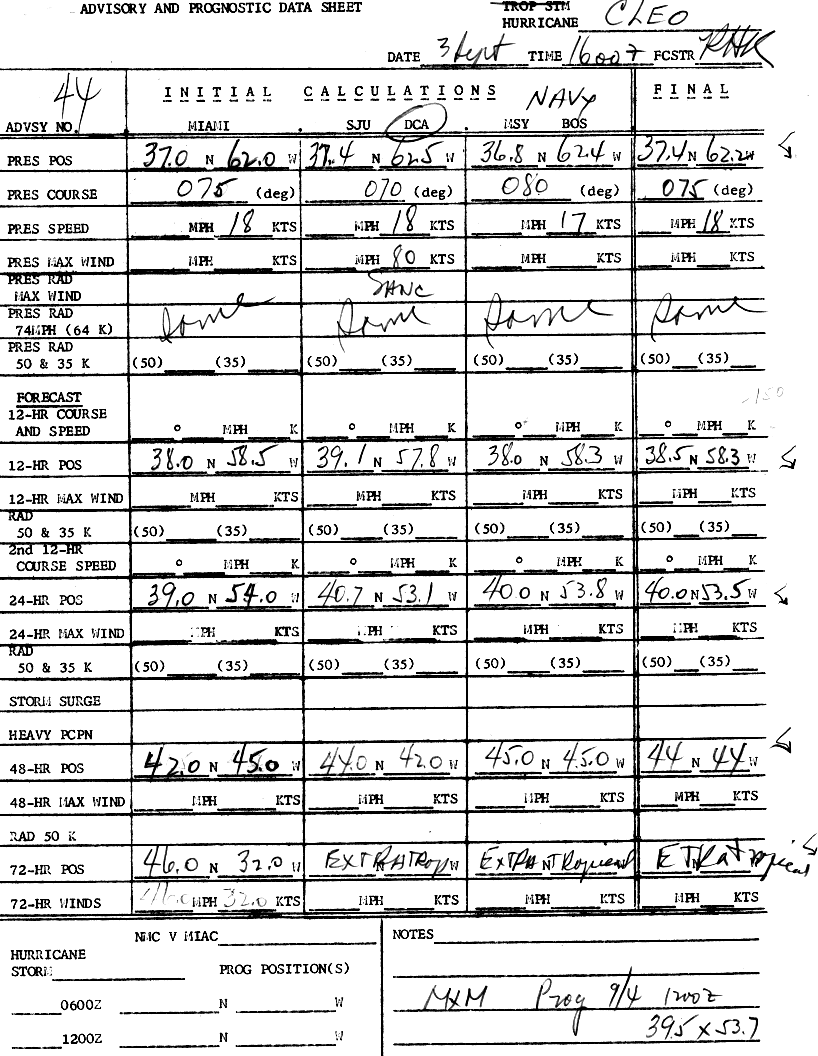 ADVISORY AND PROGNOSTIC DATA SHEET TROP STM
HURRICANE CLEO
DATE 3 Sept TIME 1600Z FCSTR RHK
44 INITIAL CALCULATIONS NAVY FINAL
ADVSY NO. MIAMI SJU DCA MSY BOS
PRES POS 37.0 N 62.0 W 37.4 N 62.5 W 36.8 N 62.4 W 37.4 N 62.2 W
PRES COURSE 075 (deg) 070 (deg) 080 (deg) 075 (deg)
PRES SPEED MPH 18 KTS MPH 18 KTS MPH 17 KTS MPH 18 KTS
PRES MAX WIND MPH KTS MPH 80 KTS MPH KTS MPH KTS
PRES RAD
MAX WIND
PRES RAD Same Same Same Same
74MPH (64 K)
PRES RAD
50 & 35 K (50) (35) (50) (35) (50) (35) (50) (35)
FORECAST
12-HR COURSE
AND SPEED ° MPH K ° MPH K ° MPH K ° MPH K
12-HR POS 38.0 N 58.5 W 39.1 N 57.8 W 38.0 N 58.3 W 38.5 N 58.3 W
12-HR MAX WIND MPH KTS MPH KTS MPH KTS MPH KTS
RAD
50 & 35 K (50) (35) (50) (35) (50) (35) (50) (35)
2nd 12-HR
COURSE SPEED ° MPH K ° MPH K ° MPH K ° MPH K
24-HR POS 39.0 N 54.0 W 40.7 N 53.1 W 40.0 N 53.8 W 40.0 N 53.5 W
24-HR MAX WIND MPH KTS MPH KTS MPH KTS MPH KTS
RAD
50 & 35 K (50) (35) (50) (35) (50) (35) (50) (35)
STORM SURGE
HEAVY PCPN
48-HR POS 42.0 N 45.0 W 44.0 N 42.0 W 45.0 N 45.0 W 44 N 44 W
48-HR MAX WIND MPH KTS MPH KTS MPH KTS MPH KTS
RAD 50 K
72-HR POS 46.0 N 32.0 W EXTRATROP W EXTRATROPICAL ETRATROPICAL
72-HR WINDS 46.0 MPH 32.0 KTS MPH KTS MPH KTS MPH KTS
NMC V MIAC NOTES
HURRICANE
STORM PROG POSITION(S)
0600Z N W MXM Prog 9/4 1200Z
1200Z N W 39.5 x 53.7